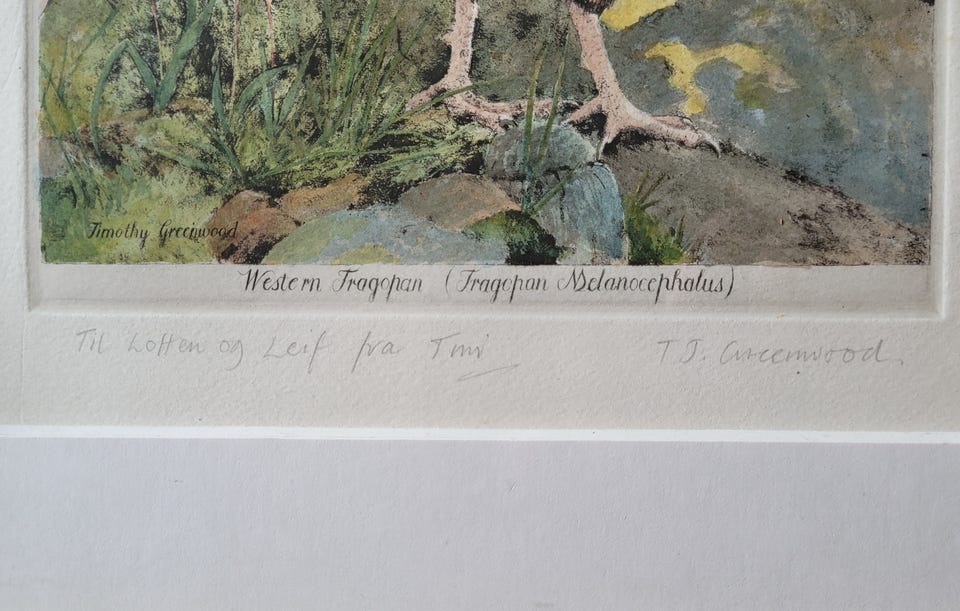 Timothy Greenwood
Western Tragopan (Tragopan Melanocephalus)
Til Lotten og Leif fra Tmi T J. Greenwood.